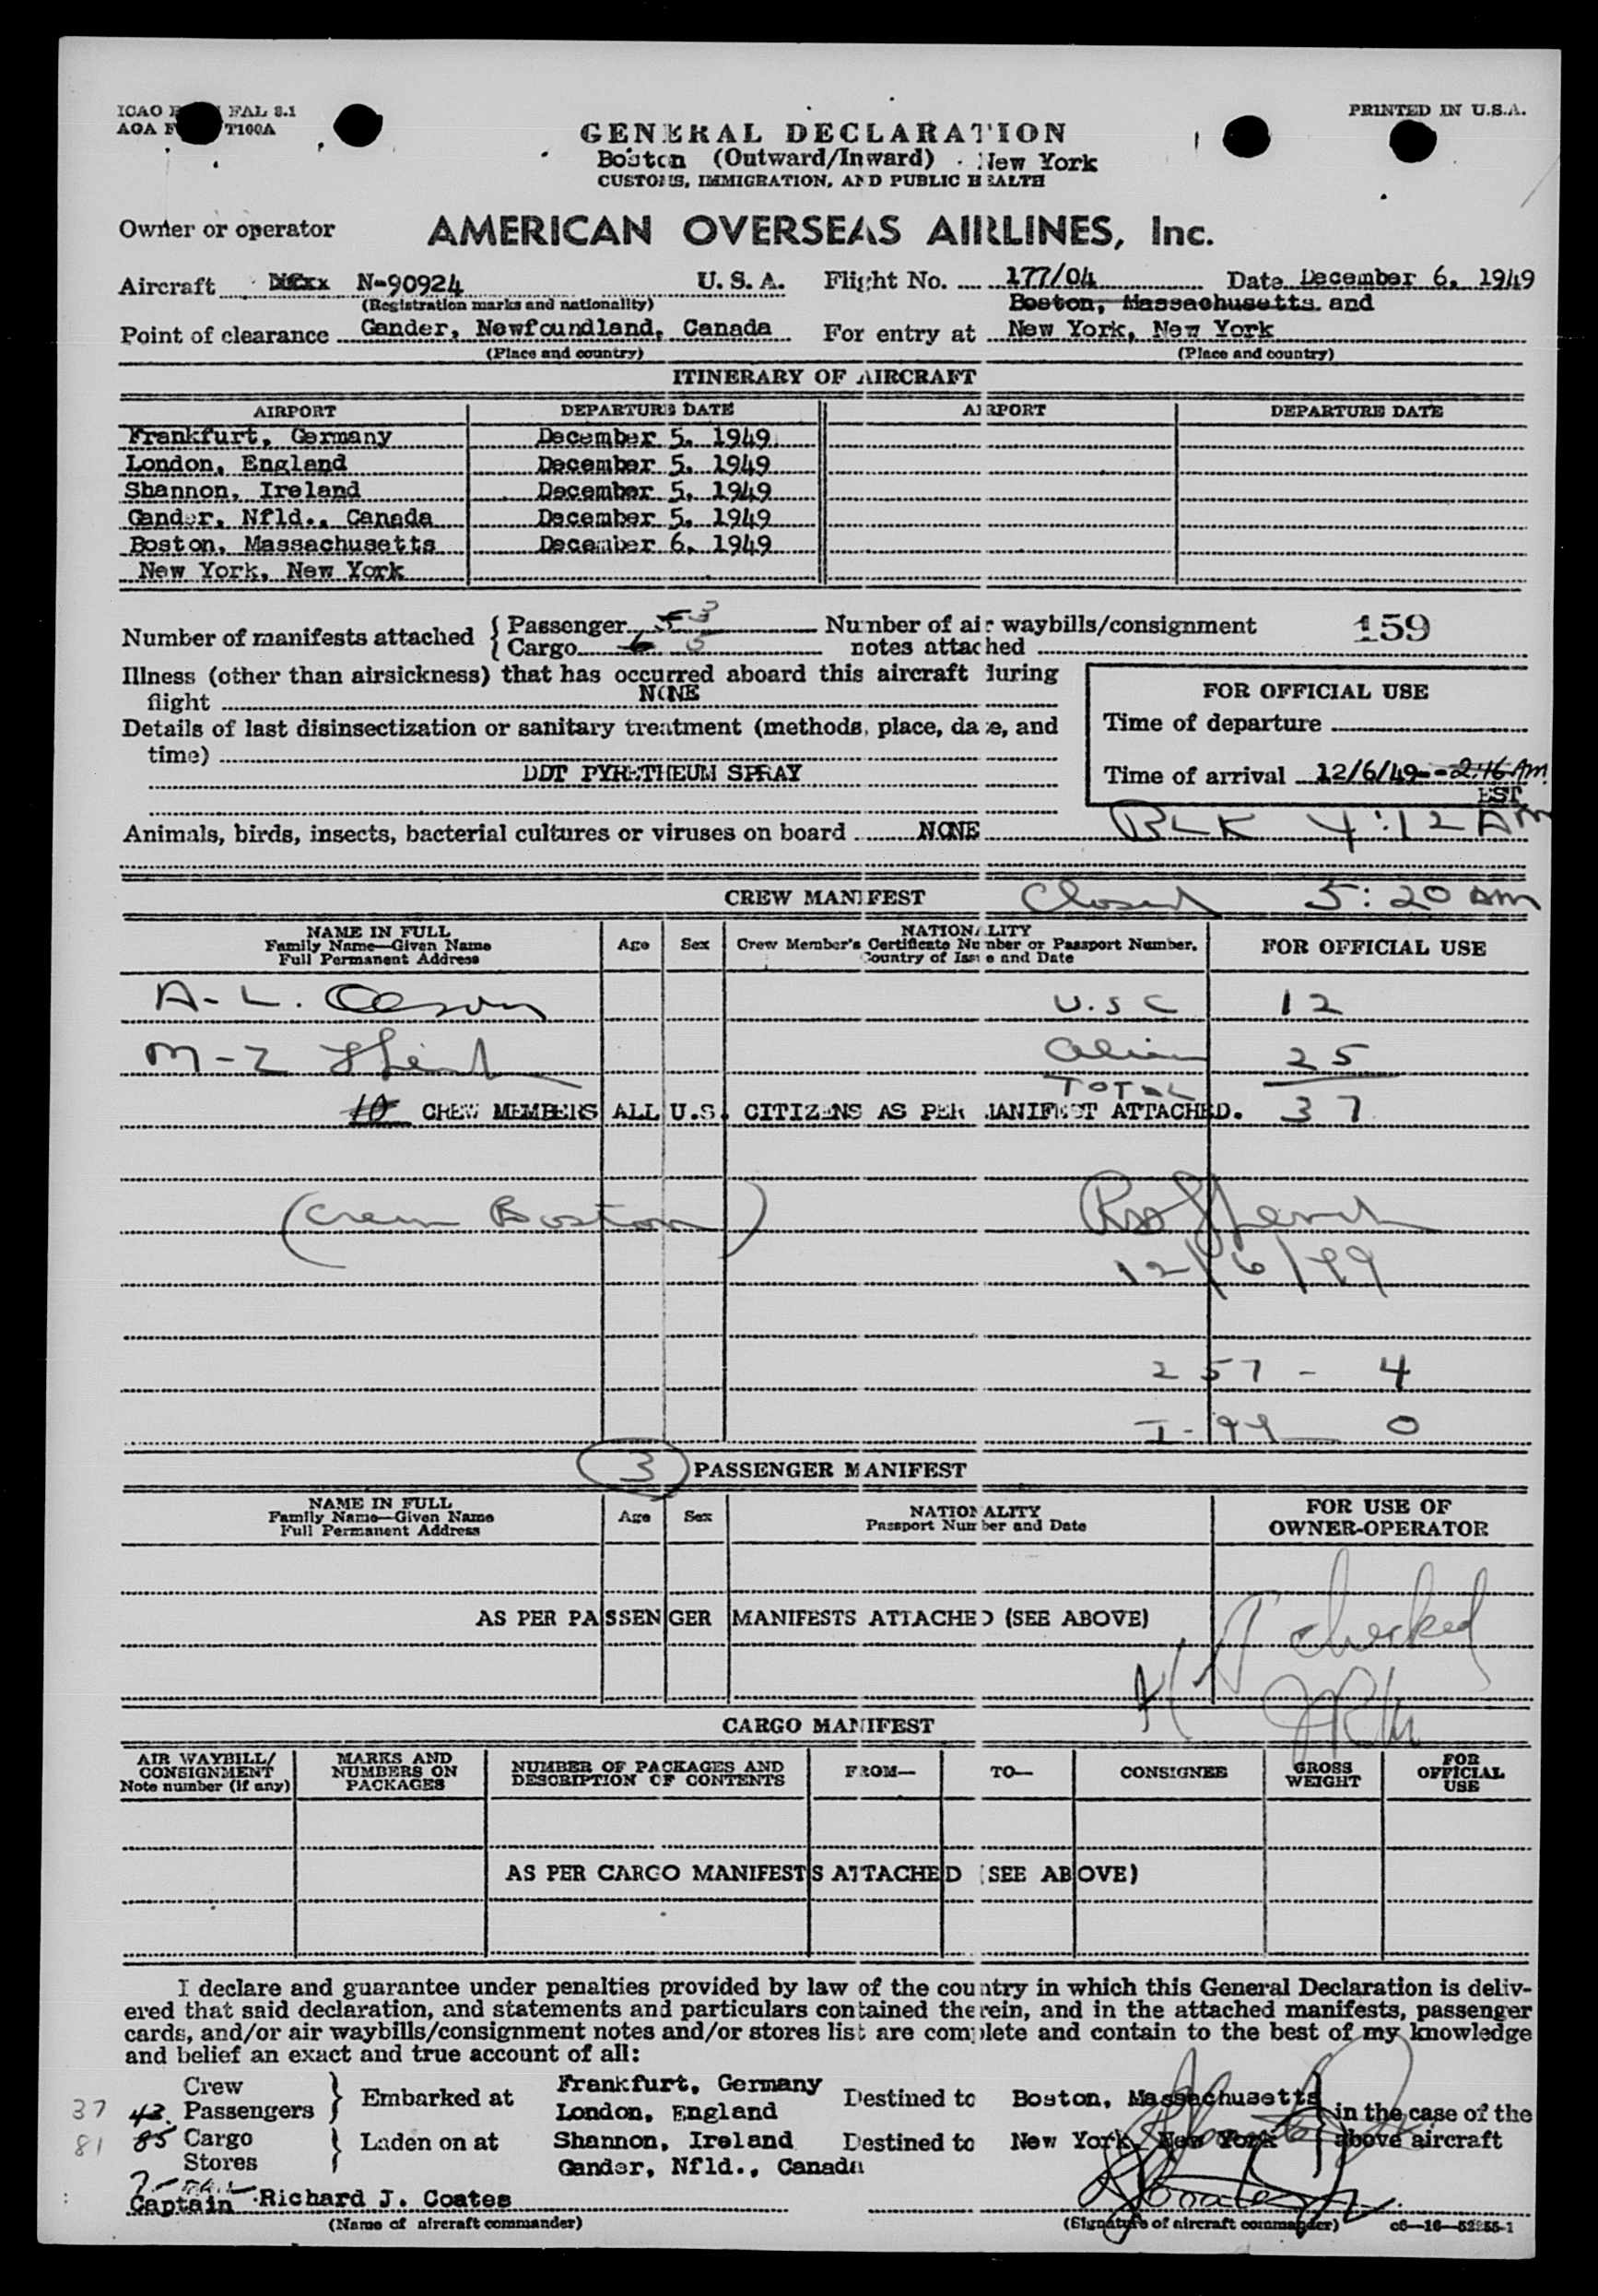 ICAO FAL 8.1
AOA T100A
PRINTED IN U.S.A.
GENERAL DECLARATION
Boston (Outward/Inward) New York
CUSTOMS, IMMIGRATION, AND PUBLIC HEALTH
Owner or operator AMERICAN OVERSEAS AIRLINES, Inc.
Aircraft N-90924 U. S. A. Flight No. 177/04 Date December 6, 1949
(Registration marks and nationality) Boston, Massachusetts and
Point of clearance Gander, Newfoundland, Canada For entry at New York, New York
(Place and country) (Place and country)
ITINERARY OF AIRCRAFT
AIRPORT DEPARTURE DATE AIRPORT DEPARTURE DATE
Frankfurt, Germany December 5, 1949
London, England December 5, 1949
Shannon, Ireland December 5, 1949
Gander, Nfld., Canada December 5, 1949
Boston, Massachusetts December 6, 1949
New York, New York
Number of manifests attached { Passenger 5 3 Number of air waybills/consignment 159
{ Cargo 6 5 notes attached
Illness (other than airsickness) that has occurred aboard this aircraft during
flight NONE
FOR OFFICIAL USE
Details of last disinsectization or sanitary treatment (methods, place, date, and
time)
Time of departure
DDT PYRETHEUM SPRAY
Time of arrival 12/6/49 - 2:46 AM
EST
Animals, birds, insects, bacterial cultures or viruses on board NONE BLK 4:12 AM
CREW MANIFEST Closed 5:20 am
NAME IN FULL
Family Name—Given Name
Full Permanent Address
Age Sex
NATIONALITY
Crew Member's Certificate Number or Passport Number,
Country of Issue and Date
FOR OFFICIAL USE
A-L. Olson U.S C 12
M-Z alien 25
TOTAL
10 CREW MEMBERS ALL U.S. CITIZENS AS PER MANIFEST ATTACHED. 37
(Crew Boston)
12/6/49
257 - 4
I-99 0
3 PASSENGER MANIFEST
NAME IN FULL
Family Name—Given Name
Full Permanent Address
Age Sex
NATIONALITY
Passport Number and Date
FOR USE OF
OWNER-OPERATOR
AS PER PASSENGER MANIFESTS ATTACHED (SEE ABOVE)
checked
CARGO MANIFEST
AIR WAYBILL/
CONSIGNMENT
Note number (if any)
MARKS AND
NUMBERS ON
PACKAGES
NUMBER OF PACKAGES AND
DESCRIPTION OF CONTENTS
FROM—
TO—
CONSIGNEE
GROSS
WEIGHT
FOR
OFFICIAL
USE
AS PER CARGO MANIFESTS ATTACHED (SEE ABOVE)
I declare and guarantee under penalties provided by law of the country in which this General Declaration is deliv-
ered that said declaration, and statements and particulars contained therein, and in the attached manifests, passenger
cards, and/or air waybills/consignment notes and/or stores list are complete and contain to the best of my knowledge
and belief an exact and true account of all:
Crew Frankfurt, Germany
37 43 Passengers } Embarked at London, England Destined to Boston, Massachusetts } in the case of the
81 85 Cargo } Laden on at Shannon, Ireland Destined to New York, New York above aircraft
Stores Gander, Nfld., Canada
Captain Richard J. Coates
(Name of aircraft commander) (Signature of aircraft commander) c6—16—52255-1